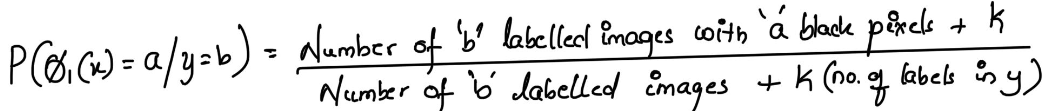 P(ø₁(x) = a/y=b) = Number of 'b' labelled images with 'a' black pixels + k
Number of 'b' labelled images + k (no. of labels in y)